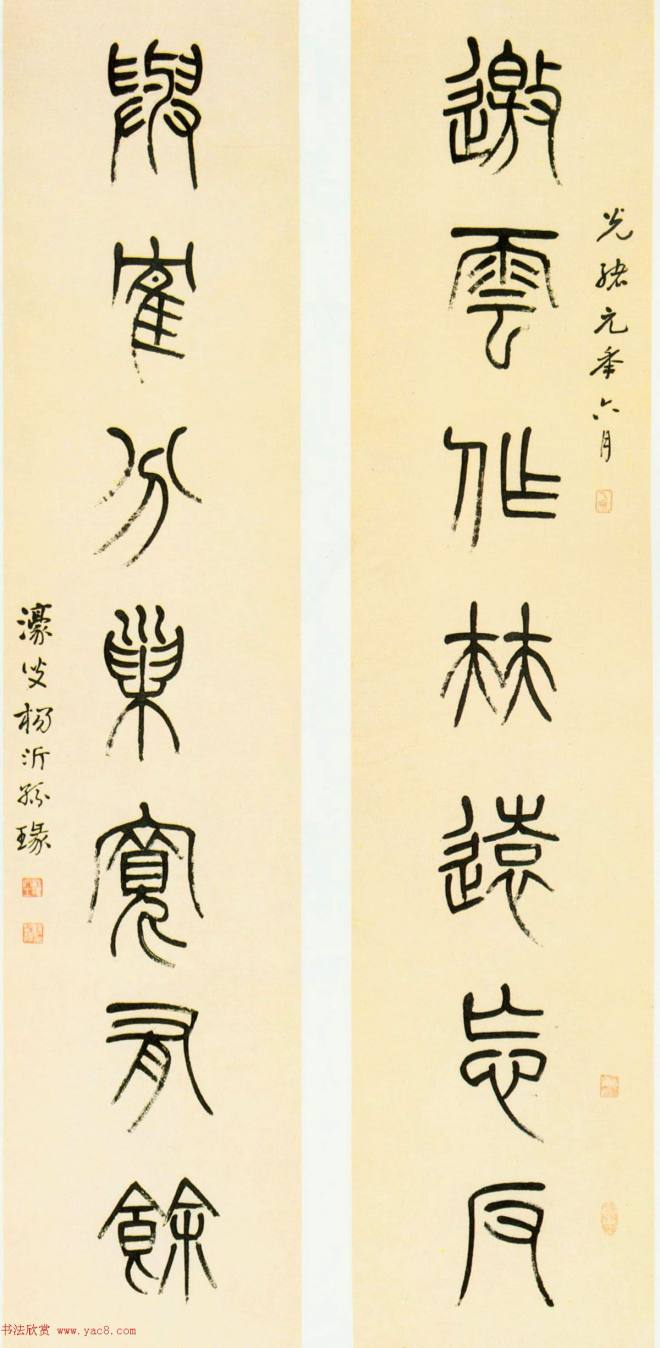 光緒元年六月
邀雲作林遠忘反
與隺分巢寬有餘
濠叟楊沂孫篆
书法欣赏 www.yac8.com